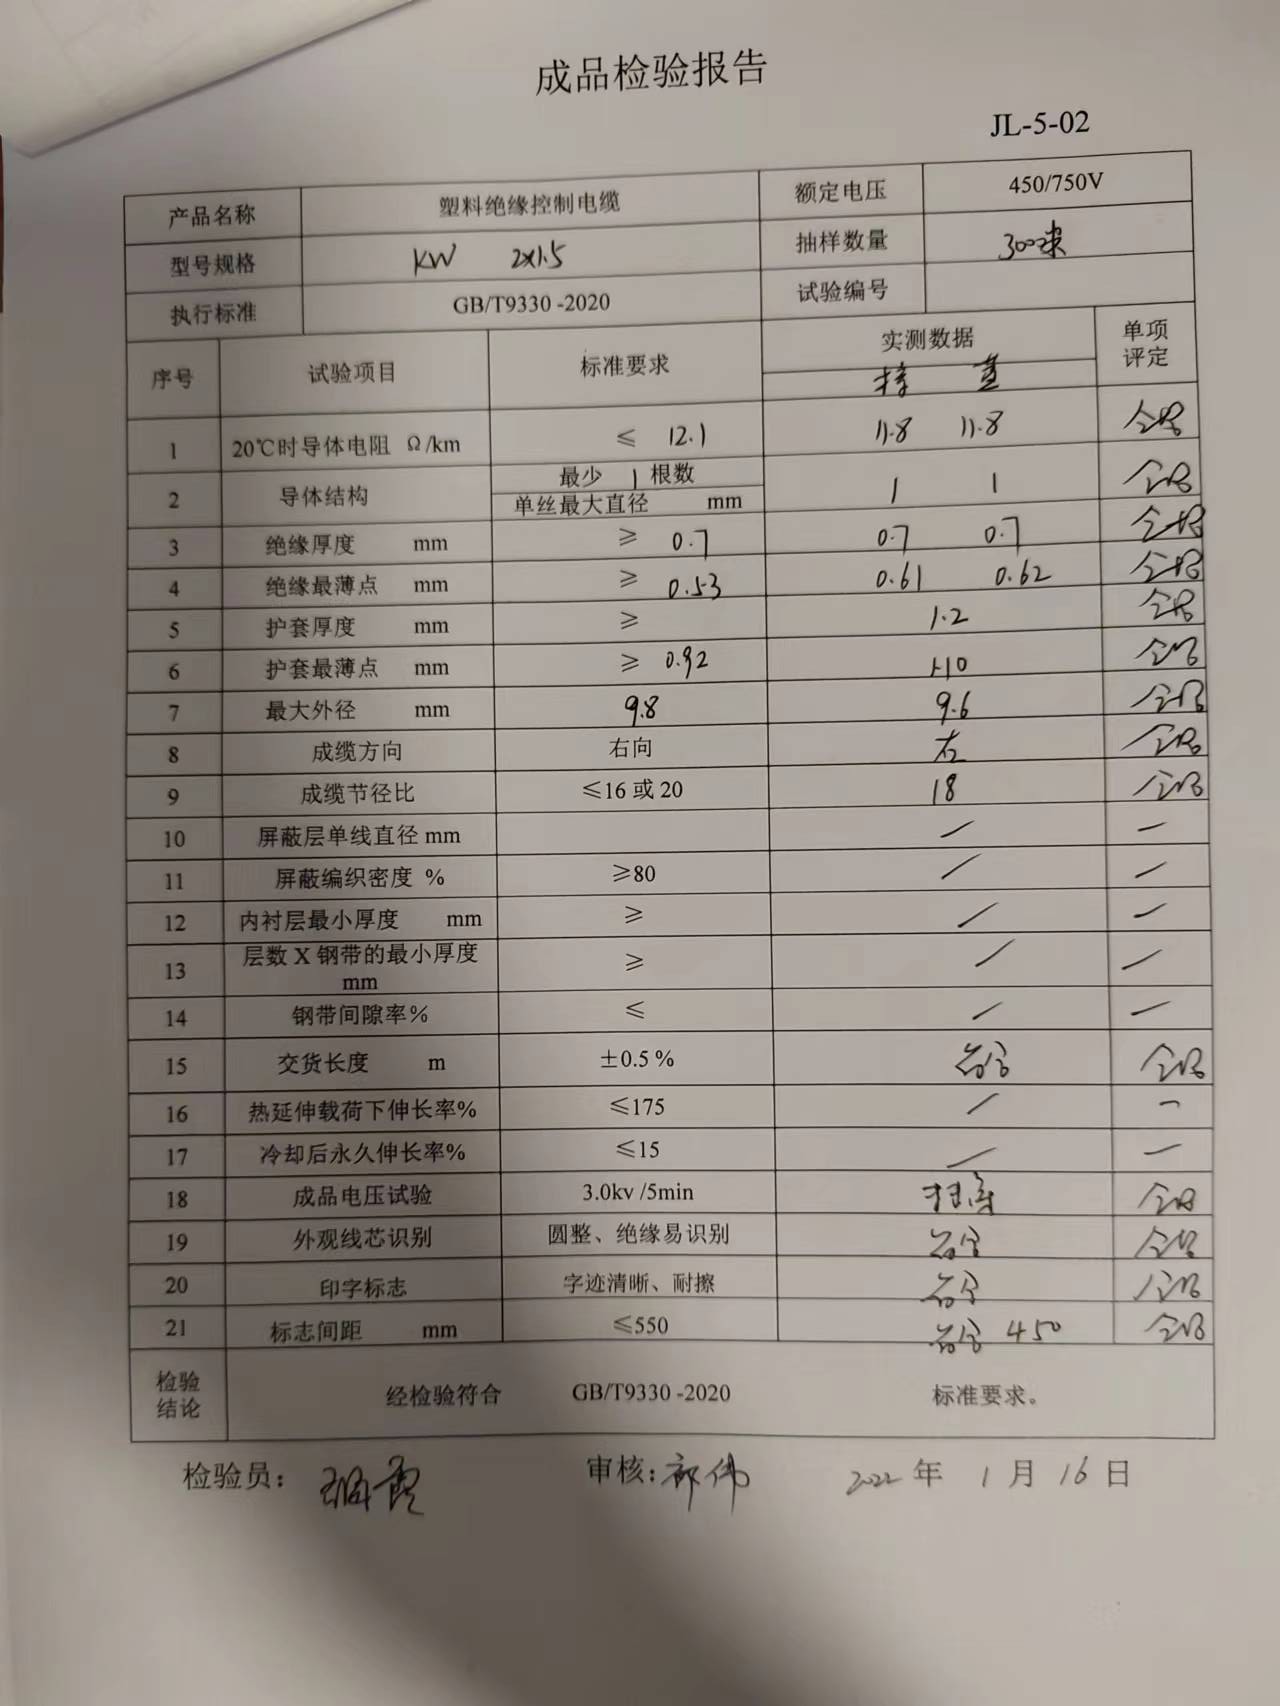 成品检验报告
JL-5-02
产品名称 塑料绝缘控制电缆 额定电压 450/750V
型号规格 KVV 2x1.5 抽样数量 300米
执行标准 GB/T9330 -2020 试验编号
序号 试验项目 标准要求 实测数据 单项评定
蓝
1 20℃时导体电阻 Ω/km ≤ 12.1 11.8 11.8 合格
2 导体结构 最少 1 根数 1 1 合格
单丝最大直径 mm
3 绝缘厚度 mm ≥ 0.7 0.7 0.7 合格
4 绝缘最薄点 mm ≥ 0.53 0.61 0.62 合格
5 护套厚度 mm ≥ 1.2 合格
6 护套最薄点 mm ≥ 0.92 1.10 合格
7 最大外径 mm 9.8 9.6 合格
8 成缆方向 右向 右 合格
9 成缆节径比 ≤16 或 20 18 合格
10 屏蔽层单线直径 mm / —
11 屏蔽编织密度 % ≥80 / —
12 内衬层最小厚度 mm ≥ / —
13 层数 X 钢带的最小厚度 mm ≥ / —
14 钢带间隙率% ≤ / —
15 交货长度 m ±0.5 % 符合 合格
16 热延伸载荷下伸长率% ≤175 / —
17 冷却后永久伸长率% ≤15 / —
18 成品电压试验 3.0kv /5min 合格
19 外观线芯识别 圆整、绝缘易识别 符合 合格
20 印字标志 字迹清晰、耐擦 符合 合格
21 标志间距 mm ≤550 符合 450 合格
检验结论 经检验符合 GB/T9330 -2020 标准要求。
检验员： 审核：郭伟 2022 年 1 月 16 日